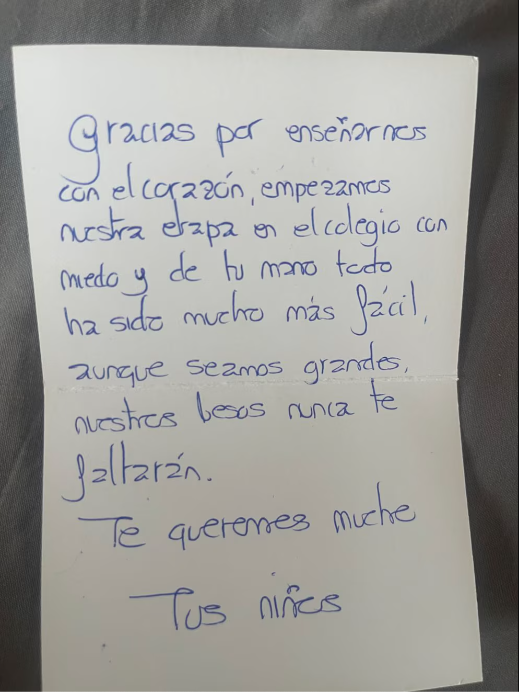 Gracias por enseñarnos
con el corazón, empezamos
nuestra etapa en el colegio con
miedo y de tu mano todo
ha sido mucho más fácil,
aunque seamos grandes,
nuestros besos nunca te
faltarán.
Te queremos mucho
Tus niños